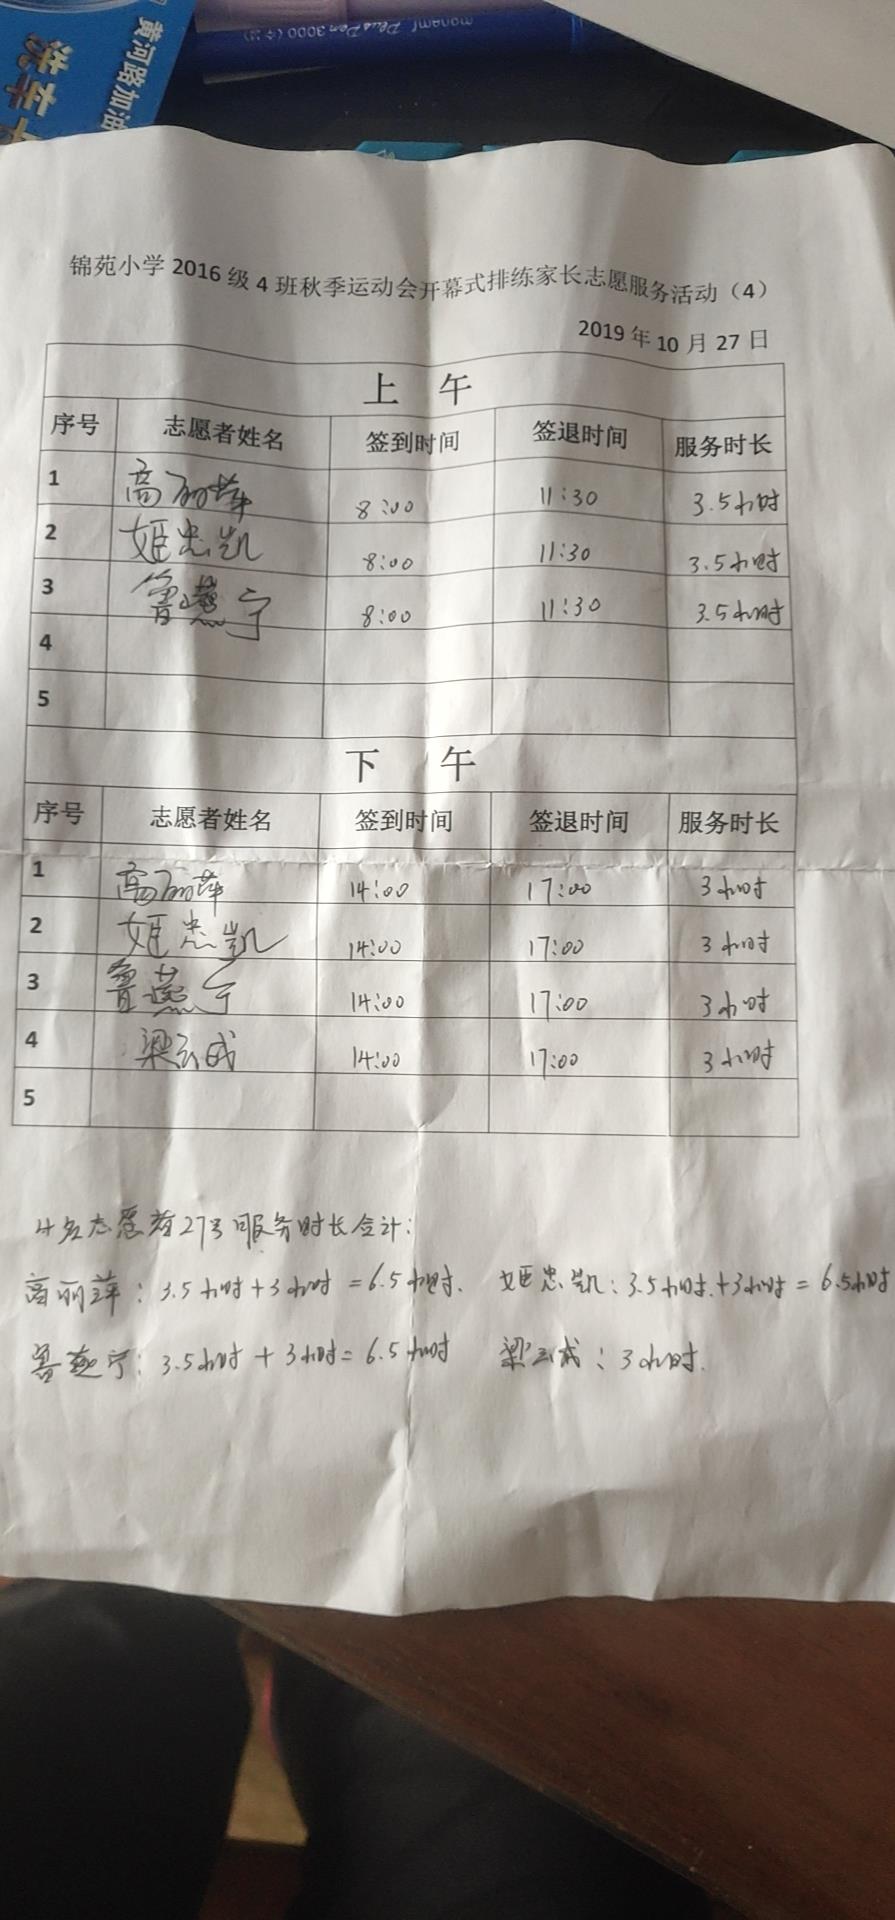 黄河路加油
洗车卡
monami Plus Pen 3000
锦苑小学2016级4班秋季运动会开幕式排练家长志愿服务活动（4）
2019年10月27日
上 午
序号 志愿者姓名 签到时间 签退时间 服务时长
1 高丽萍 8:00 11:30 3.5小时
2 姬忠凯 8:00 11:30 3.5小时
3 鲁燕宁 8:00 11:30 3.5小时
4
5
下 午
序号 志愿者姓名 签到时间 签退时间 服务时长
1 高丽萍 14:00 17:00 3小时
2 姬忠凯 14:00 17:00 3小时
3 鲁燕宁 14:00 17:00 3小时
4 梁云成 14:00 17:00 3小时
5
4名志愿者27号服务时长合计：
高丽萍：3.5小时+3小时=6.5小时. 姬忠凯：3.5小时.+3小时=6.5小时
鲁燕宁：3.5小时+3小时=6.5小时 梁云成：3小时.